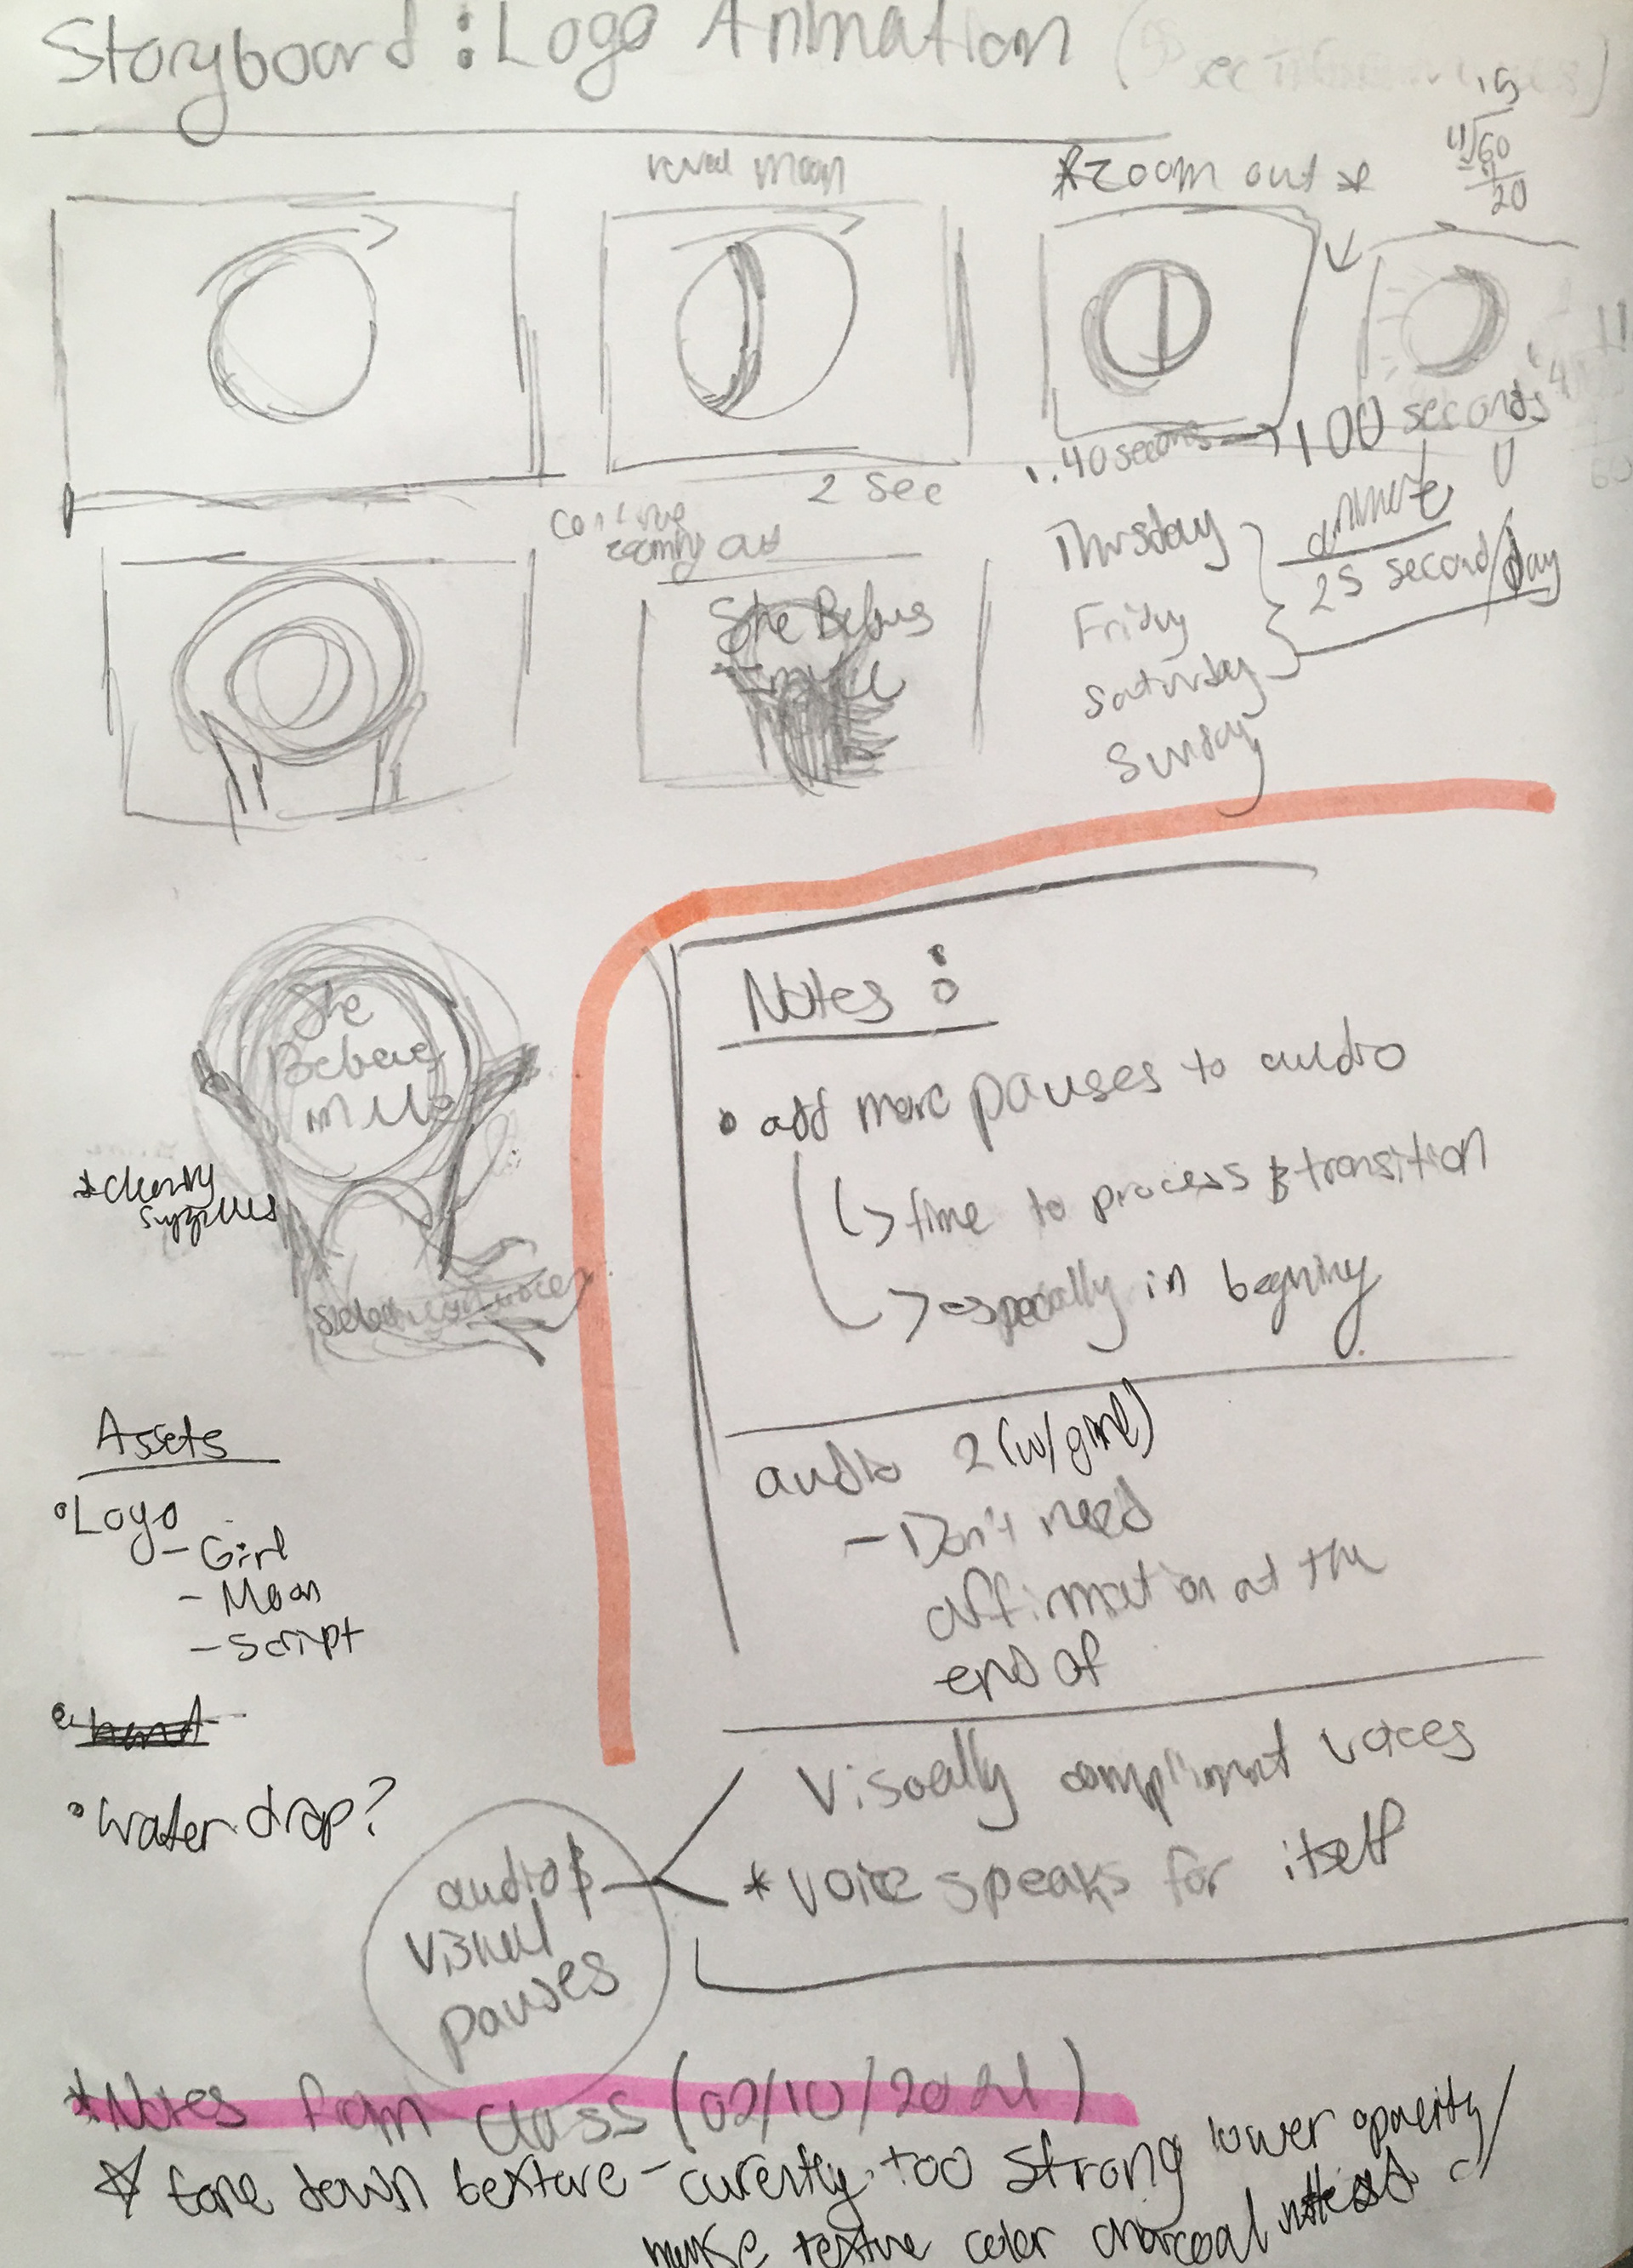 Storyboard : Logo Animation
sec
15
4√60
4
20
reveal moon
*zoom out*
2 sec
1:40 seconds → 100 seconds
continue
zooming out
Thursday
Friday
Saturday
Sunday
animate
25 second/day
She Belives
in Me
She
Believes
in Me
Notes :
• add more pauses to audio
↳> time to process & transition
↳> especially in begining
audio 2 (w/ girl)
- Don't need
affirmation at the
end of
Visually compliment voices
* voice speaks for itself
audio &
visual
pauses
Assets
• Logo
- Girl
- Moon
- Script
• hand
• water drop?
*Notes from class (02/10/2021)
☆ tone down texture - curently too strong lower opacity/
make texture color charcoal instead of